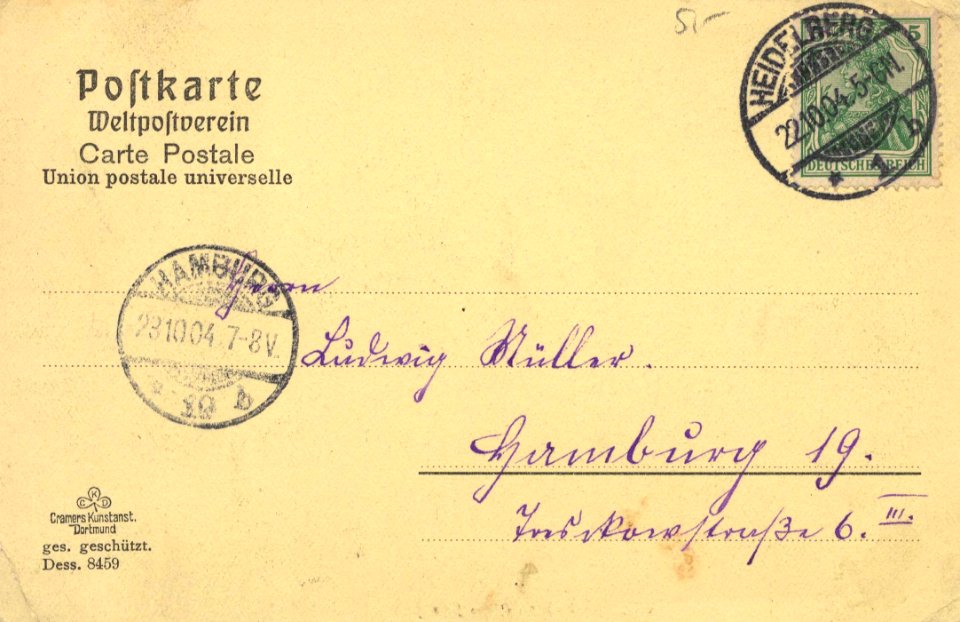 5,-
Poſtkarte
Weltpoſtverein
Carte Postale
Union postale universelle
5
DEUTSCHES REICH
HEIDELBERG
22.10.04.5-6N.
* 1 b
HAMBURG
23.10.04.7-8V.
Herrn
Ludwig Müller.
Hamburg 19.
Tresckowstraße 6. III.
C K D
Cramers Kunstanst.
Dortmund
ges. geschützt.
Dess. 8459